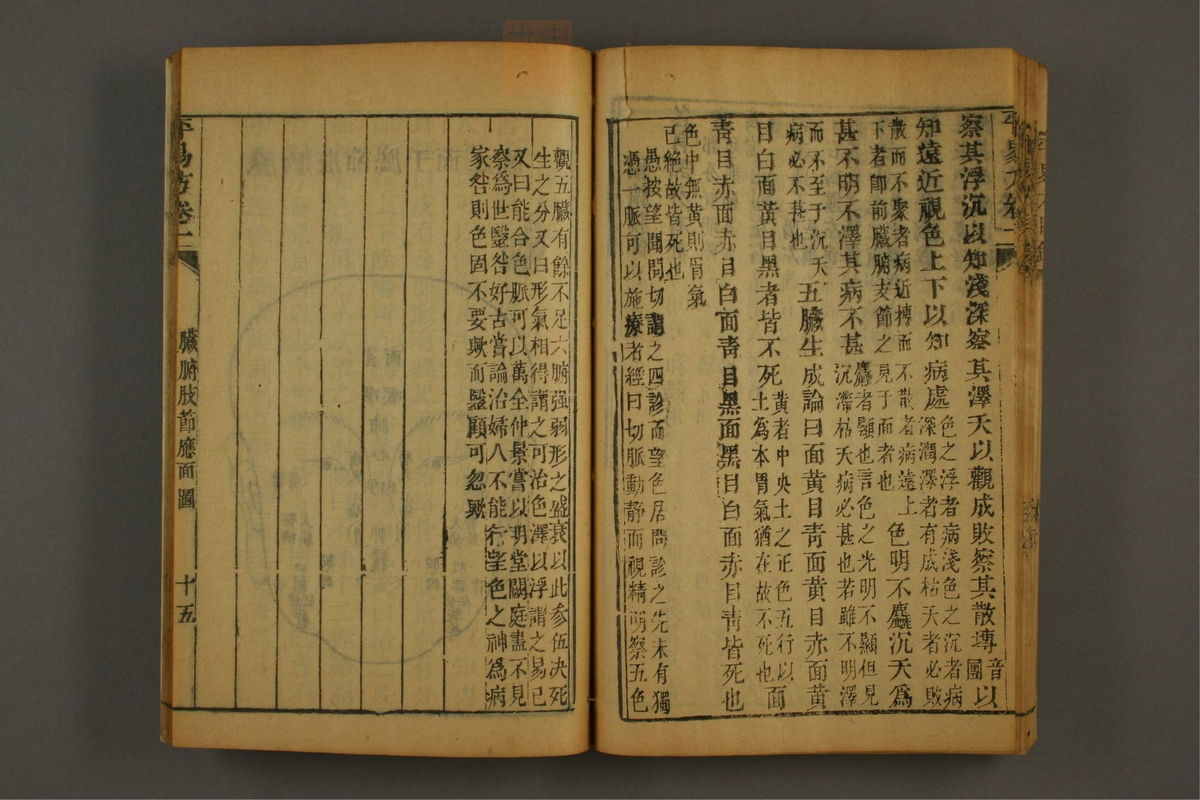 察其浮沉以知淺深察其澤夭以觀成敗察其散摶音團以
知遠近視色上下以知病處色之浮者病淺色之沉者病
深潤澤者有成枯夭者必敗
散而不聚者病近摶而不散者病遠上
下者即前臟腑支節之見于面者也色明不麤沉夭為
甚不明不澤其病不甚麤者顯也言色之光明不顯但見
沉滯枯夭病必甚也若雖不明澤
而不至于沉夭
病必不甚也五臟生成論曰面黃目青面黃目赤面黃
目白面黃目黑者皆不死黃者中央土之正色五行以
土為本胃氣猶在故不死也面
青目赤面赤目白面青目黑面黑目白面赤目青皆死也
色中無黃則胃氣
已絕故皆死也
愚按望聞問切謂之四診而望色居問診之先未有獨
憑一脈可以施療者經曰切脈動靜而視精明察五色
平易方卷二
觀五臟有餘不足六腑強弱形之盛衰以此參伍決死
生之分又曰形氣相得謂之可治色澤以浮謂之易已
又曰能合色脈可以萬全仲景嘗以明堂闕庭盡不見
察為世醫咎好古嘗論治婦人不能行望色之神為病
家咎則色固不要歟而醫顧可忽歟
平易方卷二
臟腑肢節應面圖
十五